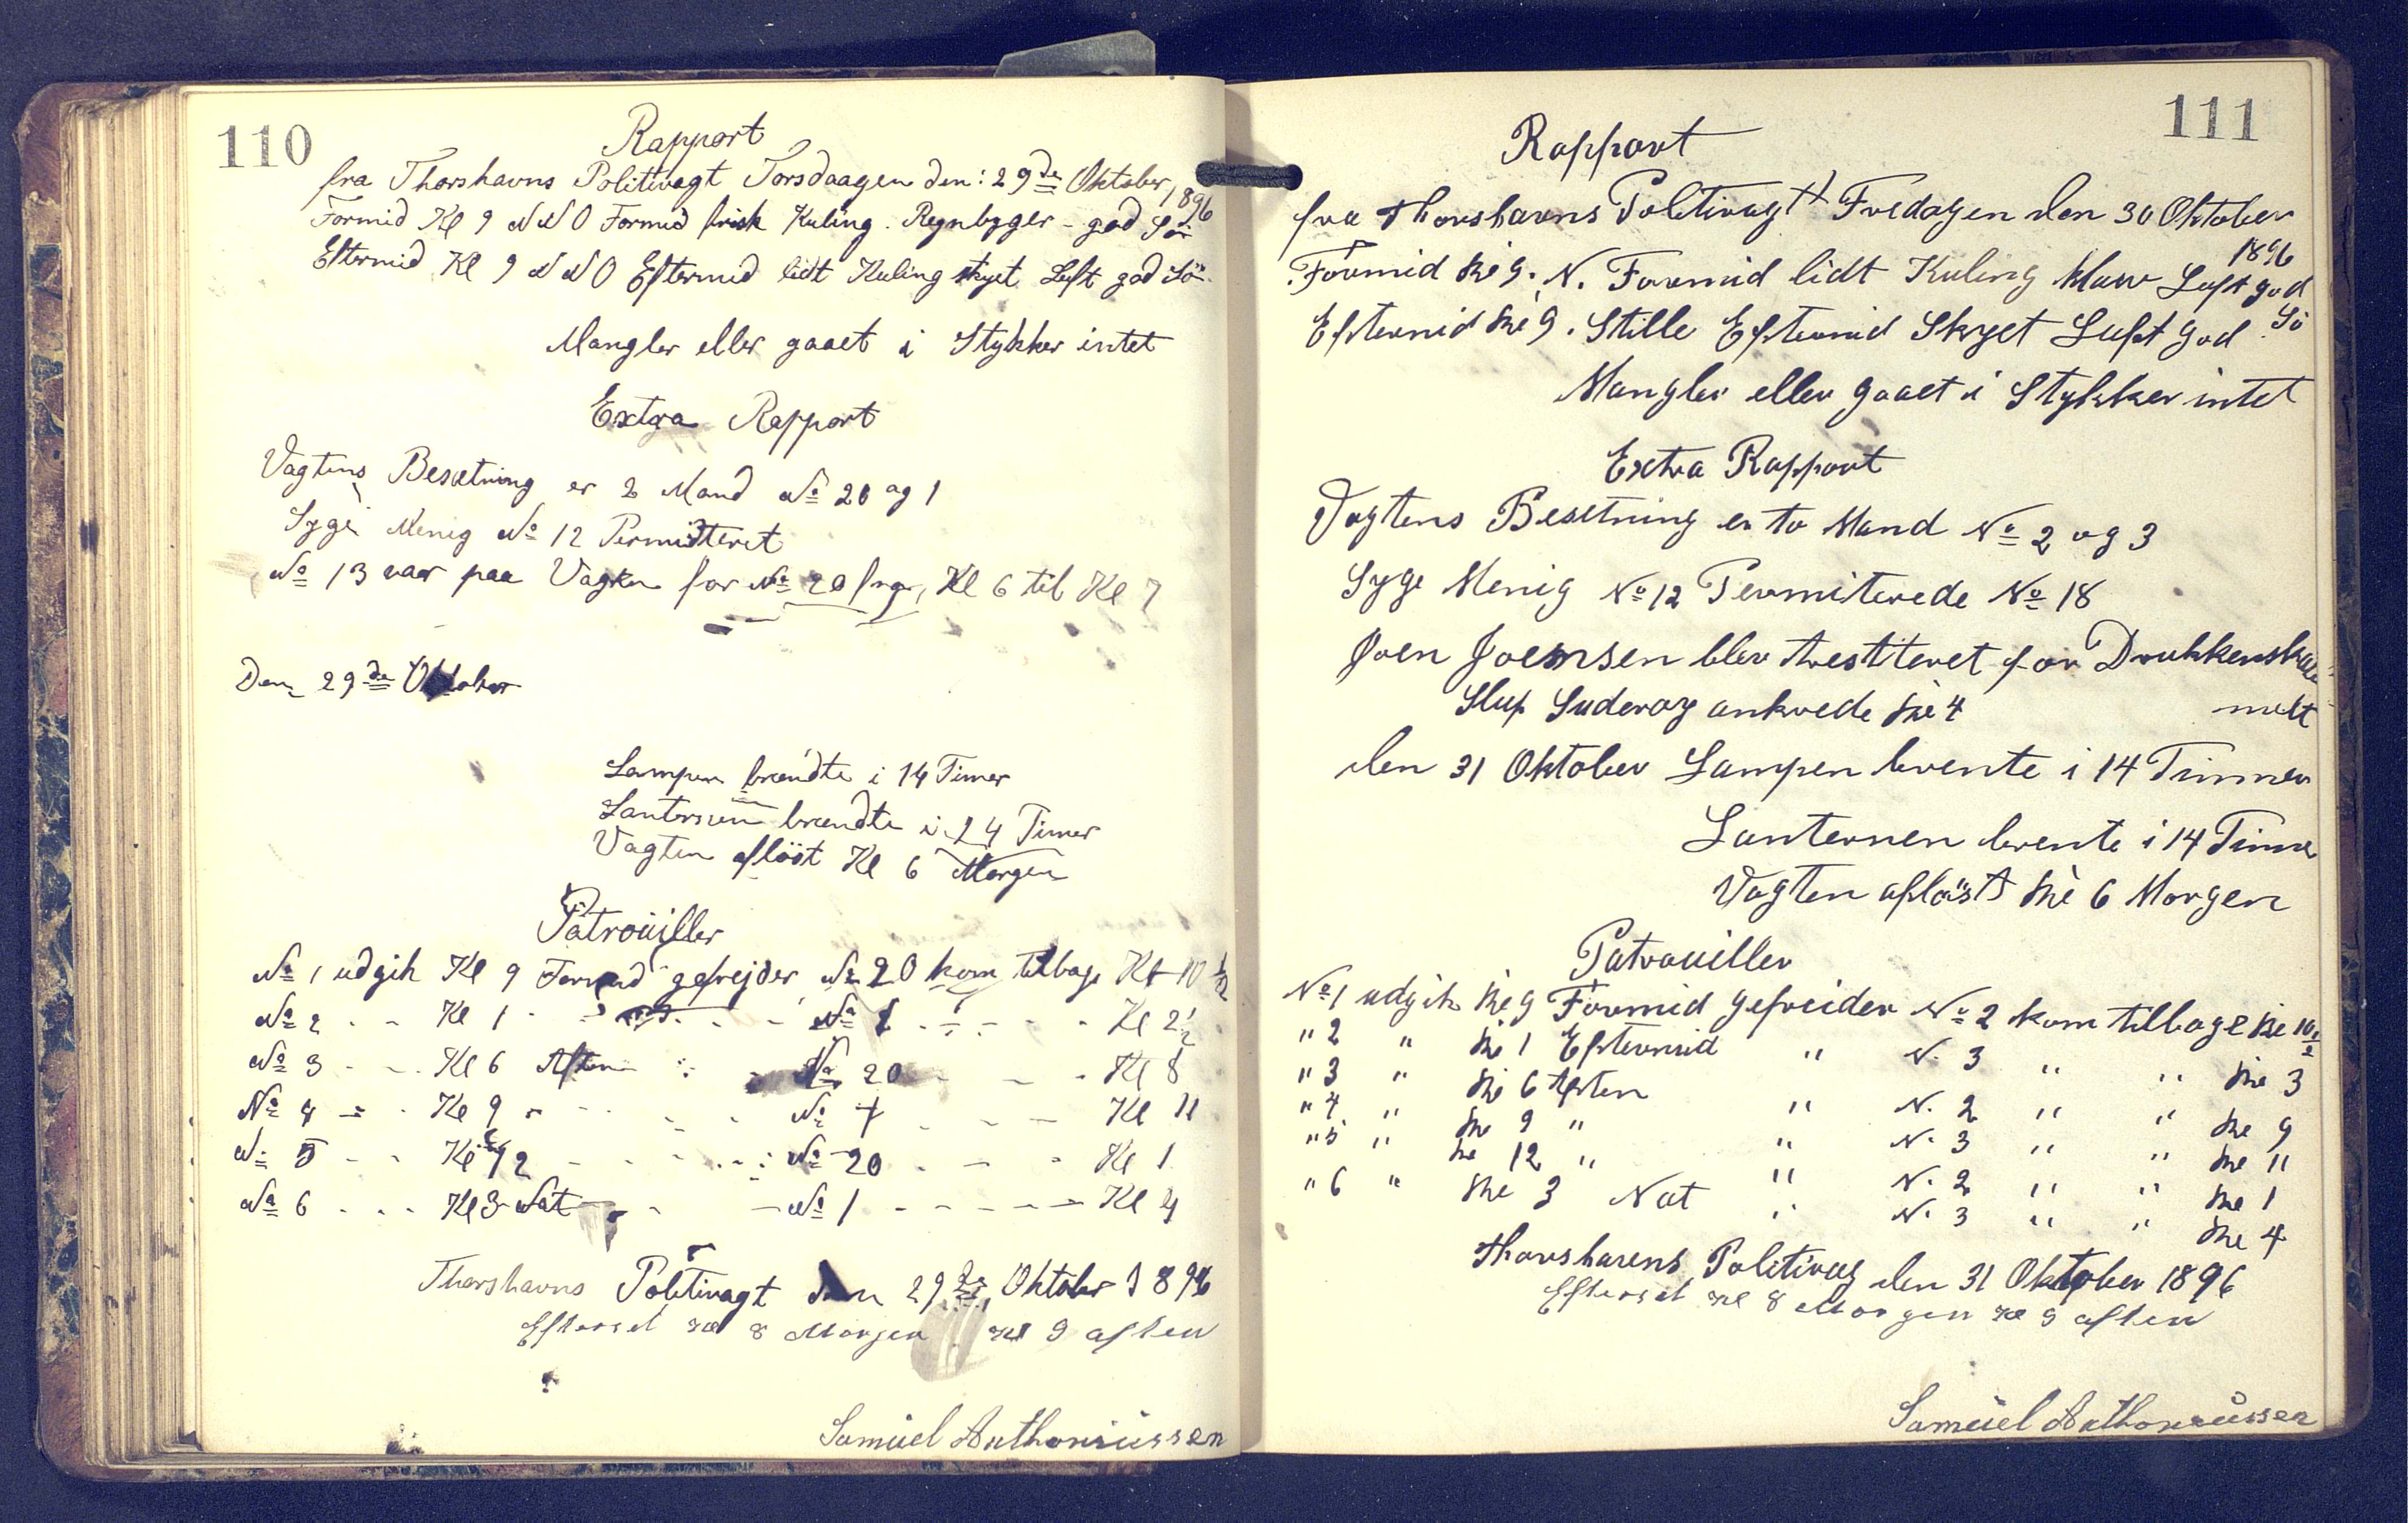 110
Rapport
fra Thorshavns Politivagt Torsdaagen den: 29de Oktober 1896
Formid Kl 9 NNO Formid frisk Kuling. Regnbyger - god Sö
Eftermid Kl 9 NNO Eftermid lidt Kuling skyet Luft god Sö.
Mangler eller gaaet i Stykker intet
Extra Rapport
Vagtens Besætning er 2 Mand No 20 og 1
Syge Menig No 12 Permitteret
No 13 var paa Vagten for No 20 fra, Kl 6 til Kl 7
Den 29de Oktober
Lampen brændte i 14 Timer
Lanternen brændte i 24 Timer
Vagten aflöst Kl 6 Morgen
Patrouiller
No 1 udgik Kl 9 Formid gefrejder No 20 kom tilbage Kl 10 1/2
No 2 - - Kl 1 - - - - No 1 - - - - Kl 2 1/2
No 3 - - Kl 6 Aften - No 20 - - - Kl 8
No 4 - - Kl 9 - - - - No 1 - - - Kl 11
No 5 - - Kl 12 - - - - No 20 - - - Kl 1
No 6 - - - Kl 3 Nat - - - No 1 - - - - - Kl 4
Thorshavns Politivagt den 29de Oktober 1896
Efterset Kl 8 Morgen Kl 9 aften
Samuel Anthoniussen
111
Rapport
fra Thorshavns Politivagt Fredagen den 30 Oktober
1896
Formid Kl 9. N. Formid lidt Kuling klaar Luft god
Sö
Eftermid Kl 9. Stille Eftermid Skyet Luft god
Mangler eller gaaet i Stykker intet
Extra Rapport
Vagtens Besetning er to Mand No 2 og 3
Syge Menig No 12 Permiterede No 18
Joen Joensen blev Arestteret for Drukkenskab
Slup Suderoy ankrede Kl 4
den 31 Oktober Lampen brente i 14 Timmer
Lanternen brente i 14 Timer
Vagten aflöst Kl 6 Morgen
Patrouiller
No 1 udgik Kl 9 Formid gefreider No 2 kom tilbage Kl 10 1/2
" 2 " Kl 1 Eftermid " N. 3 " " Kl 3
" 3 " Kl 6 Aften " N. 2 " " Kl 9
" 4 " Kl 9 " " N. 3 " " Kl 11
" 5 " Kl 12 " " N. 2 " " Kl 1
" 6 " Kl 3 Nat " N. 3 " " Kl 4
Thorshavens Politivag den 31 Oktober 1896
Efterset Kl 8 Morgen Kl 9 aften
Samuel Anthoniussen